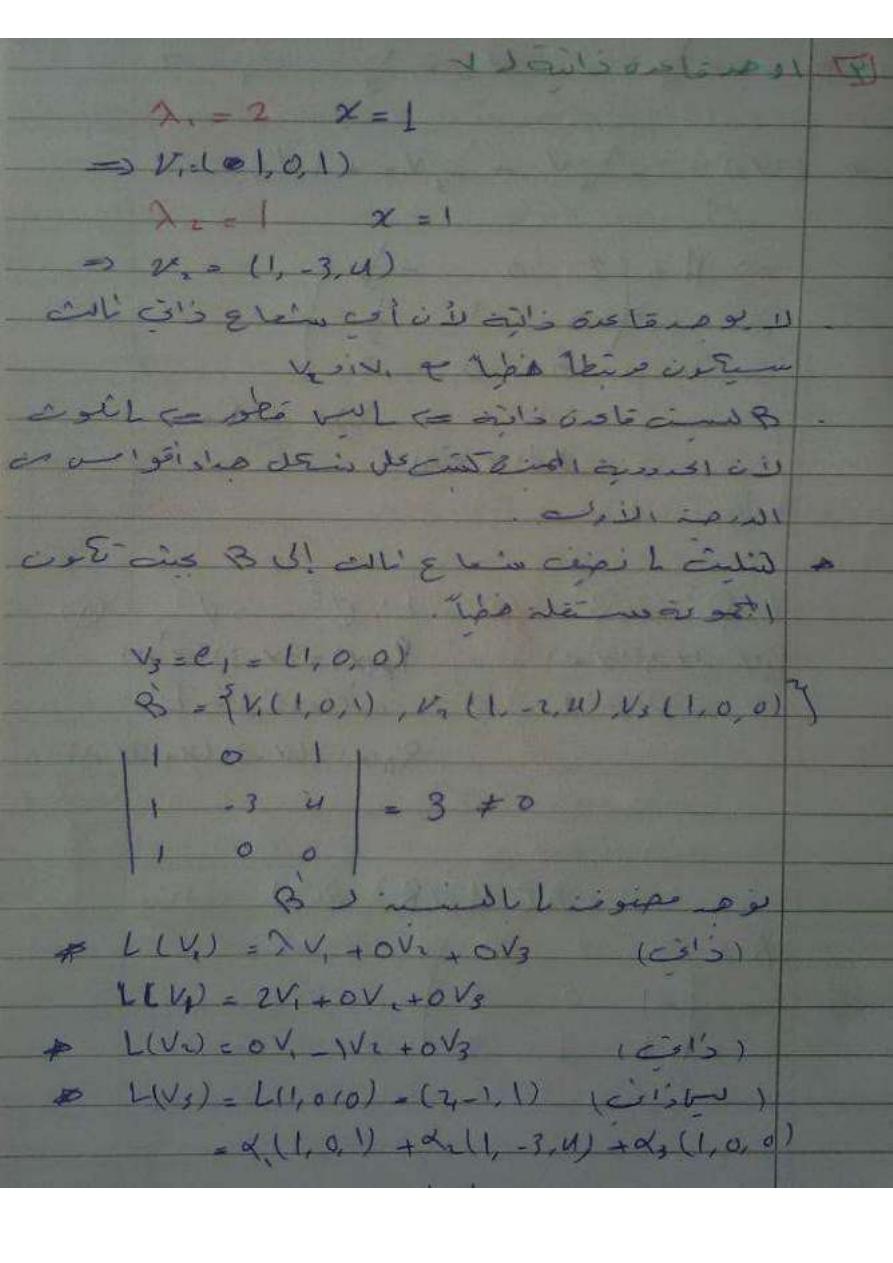 [٣] اوجد قاعدة ذاتية لـ V
λ₁ = 2 x = 1
⇒ V₁=(1, 0, 1)
λ₂ = 1 x = 1
⇒ v₂ = (1, -3, 4)
. لا يوجد قاعدة ذاتية لأن أي شعاع ذاتي ثالث
سيكون مرتبطاً خطياً مع V₁ أو V₂
. B ليست قاعدة ذاتية ⇐ L ليس قطور ⇐ L تثلوث
لأن الحدودية المميزة كتبت على شكل جداء أقواس من
الدرجة الأولى .
* لتثليث L نضيف شعاع ثالث إلى B بحيث تكون
المجموعة مستقلة خطياً.
V₃ = e₁ = (1, 0, 0)
B' = {V₁(1, 0, 1), V₂(1, -2, 4), V₃(1, 0, 0)}
| 1 0 1 |
| 1 -3 4 | = 3 ≠ 0
| 1 0 0 |
نوجد مصفوفة L بالنسبة لـ B'
* L(V₁) = λV₁ + 0V₂ + 0V₃ (ذاتي)
L(V₁) = 2V₁ + 0V₂ + 0V₃
* L(V₂) = 0V₁ - 1V₂ + 0V₃ (ذاتي)
* L(V₃) = L(1, 0, 0) = (2, -1, 1) (ليس ذاتي)
= α₁(1, 0, 1) + α₂(1, -3, 4) + α₃(1, 0, 0)